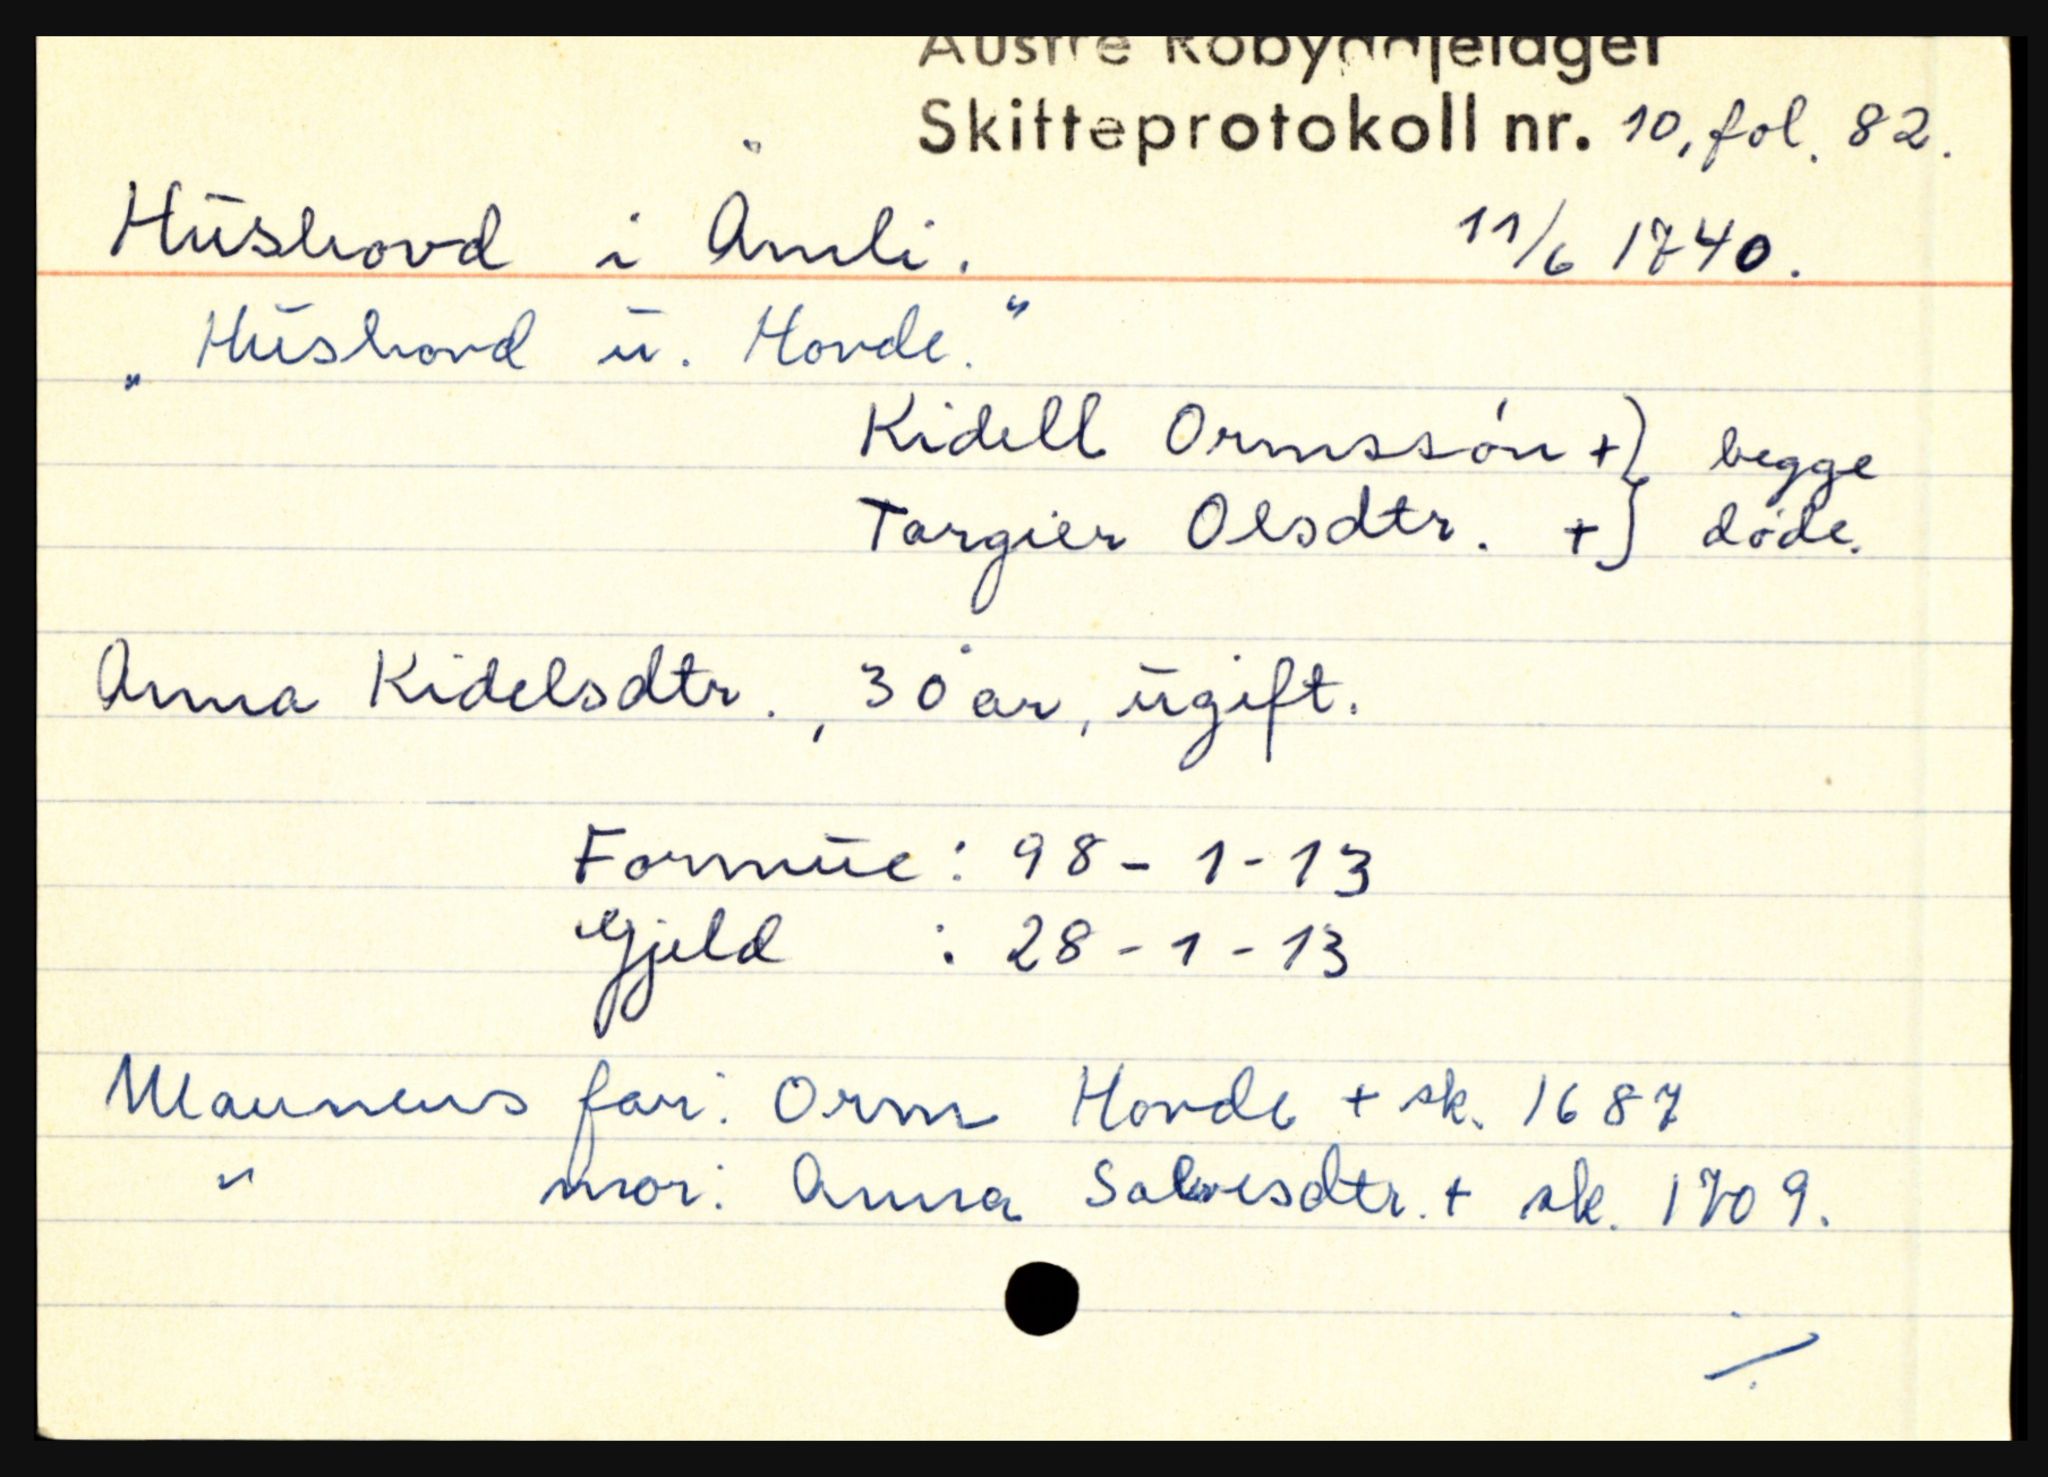 Austre Robyggjelaget
Skifteprotokoll nr. 10, fol. 82.
Hushovd i Åmli. 11/6 1740.
„Hushovd u. Hovde."
Kidell Ormssøn + } begge
Targier Olsdtr. + } døde.
Anna Kidelsdtr., 30 år, ugift.
Formue: 98-1-13
Gjeld : 28-1-13
Mannens far: Orm Hovde + sk. 1687
" mor: Anna Salvesdtr. + sk. 1709.
./.